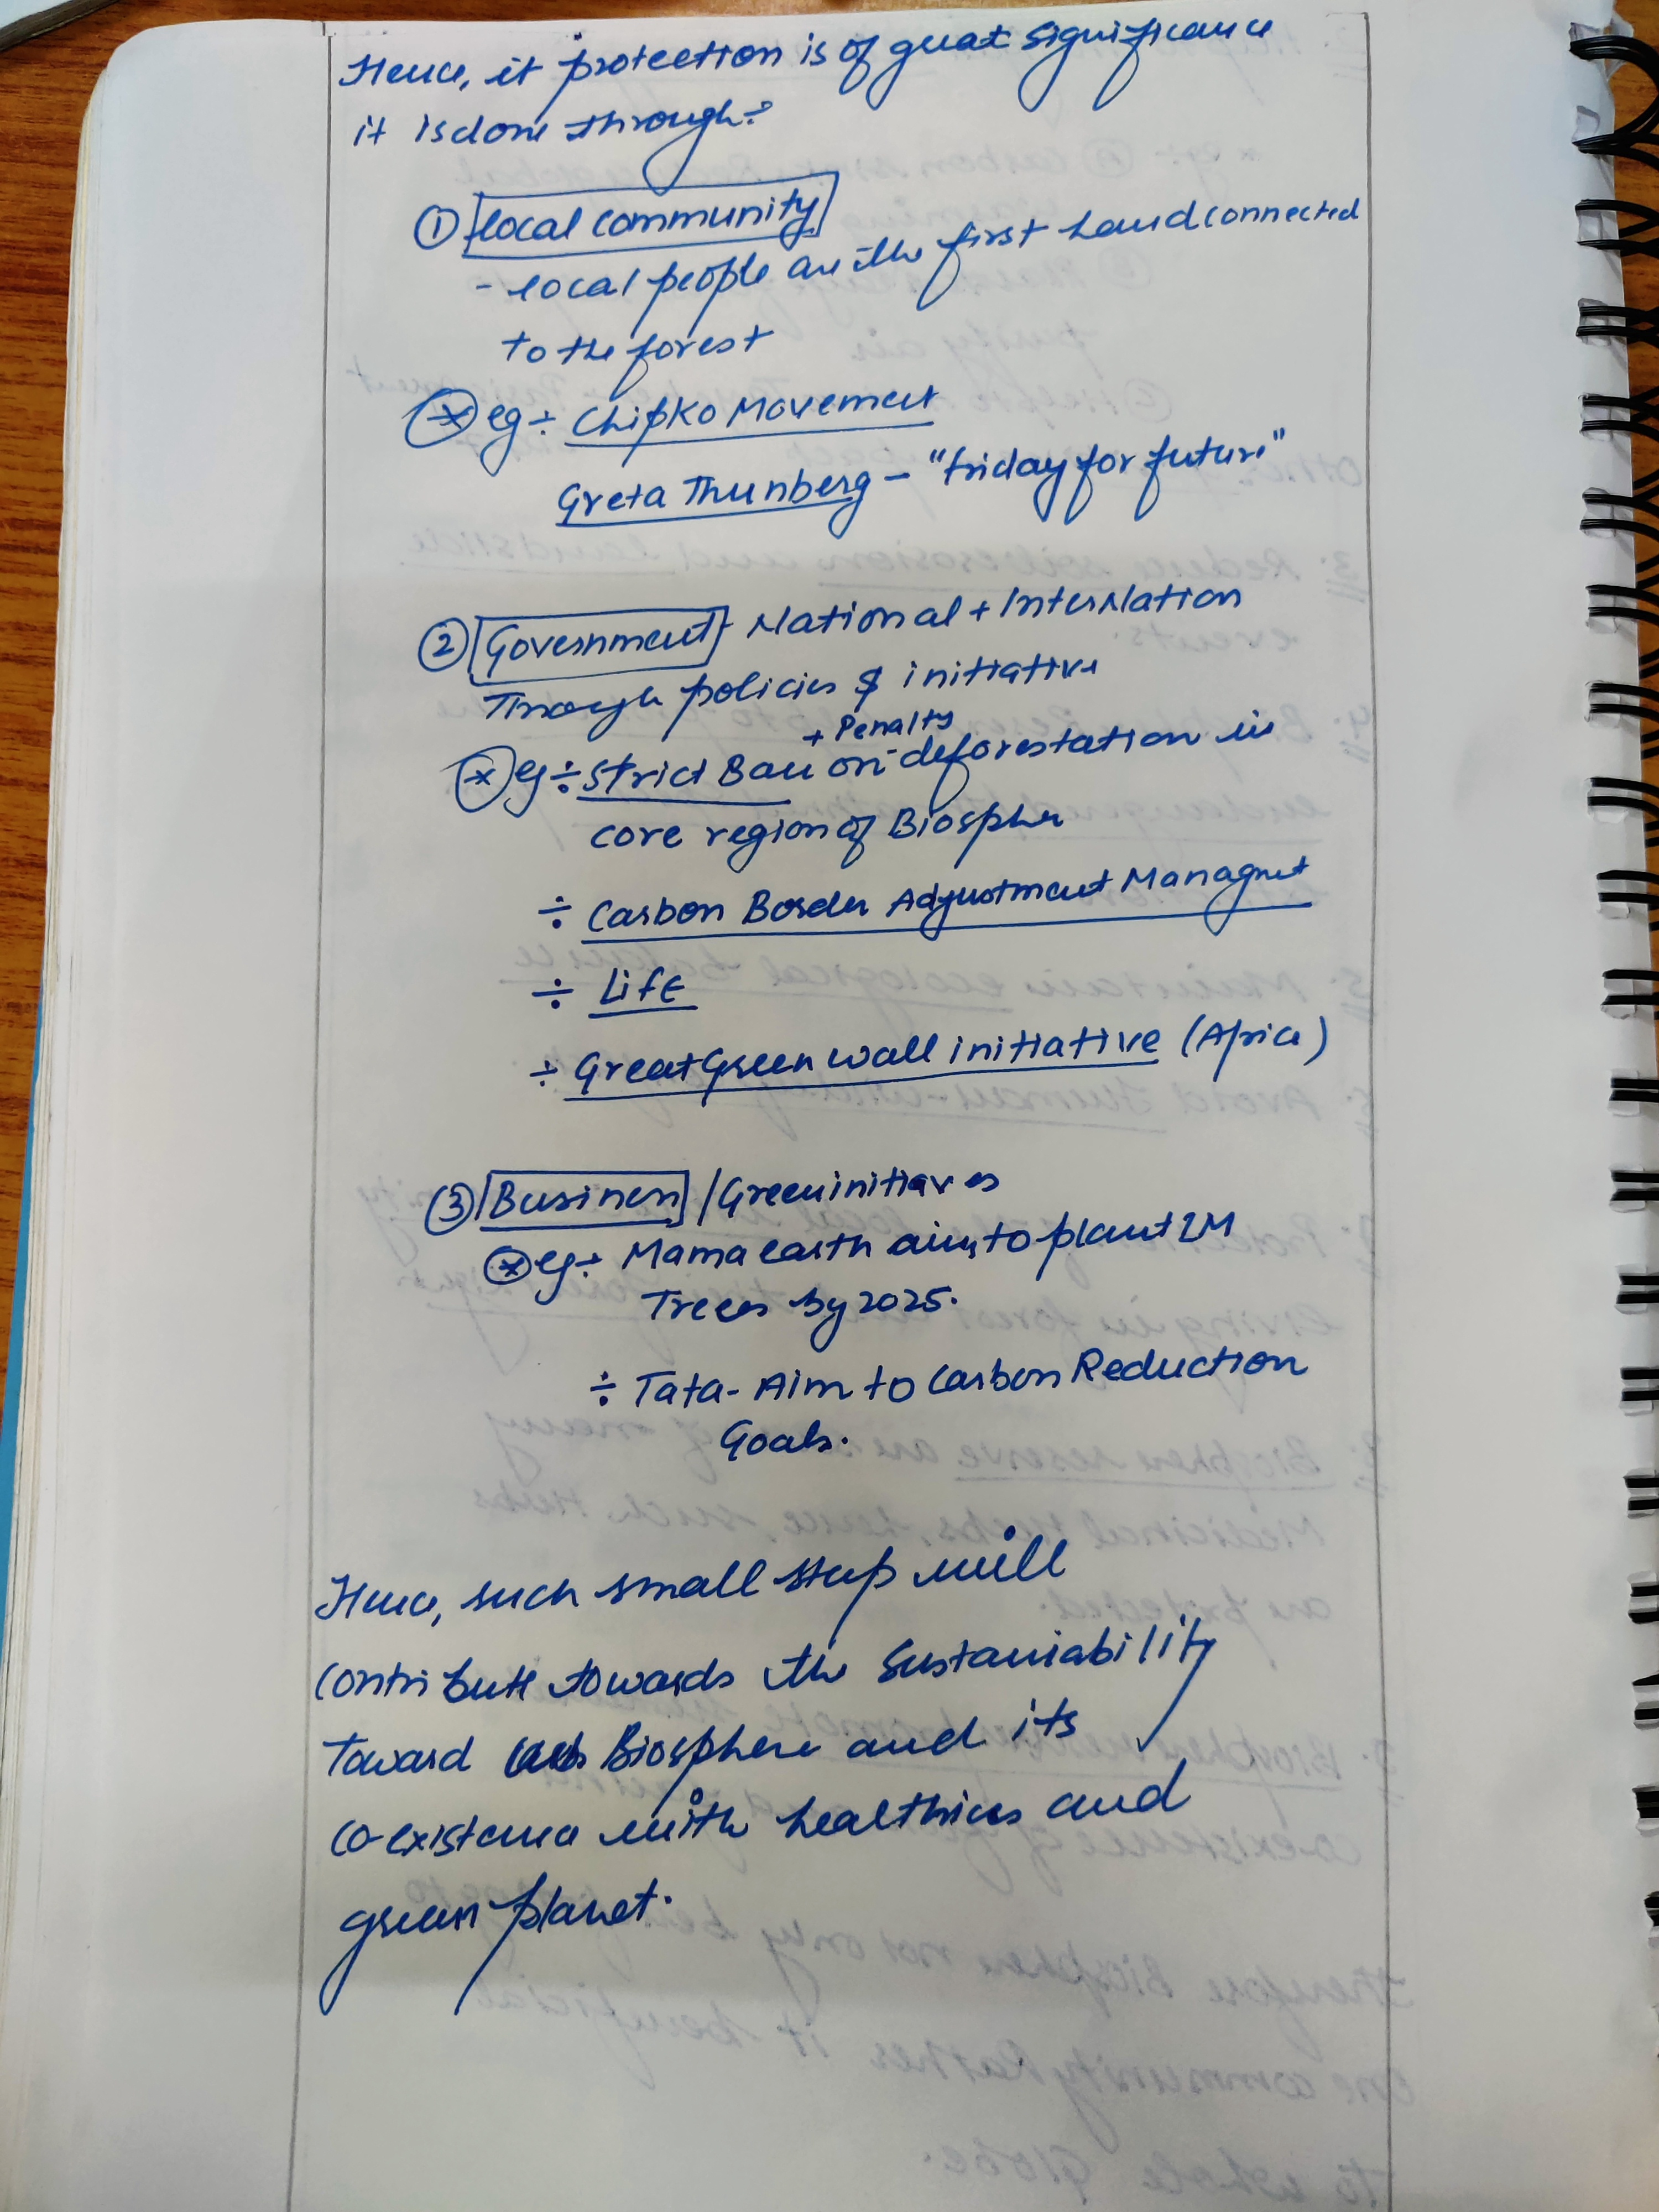 Hence, it protection is of great significance
it is done through:
① local community
- local people are the first hand connected
to the forest
* eg ÷ Chipko Movement
Greta Thunberg - "friday for future"
② Government - National + InterNation
Through policies & initiative
+ Penalty
* eg ÷ Strict Ban on deforestation in
core region of Biosphere
÷ Carbon Border Adjustment Managmet
÷ LifE
÷ Great Green wall initiative (Africa)
③ Business / Green initiaves
* eg ÷ Mama earth aims to plant 1M
Trees by 2025.
÷ Tata - Aim to Carbon Reduction
Goals.
Hence, such small step will
contribute towards the sustainability
Toward Biosphere and its
co-existance with healthier and
green planet.